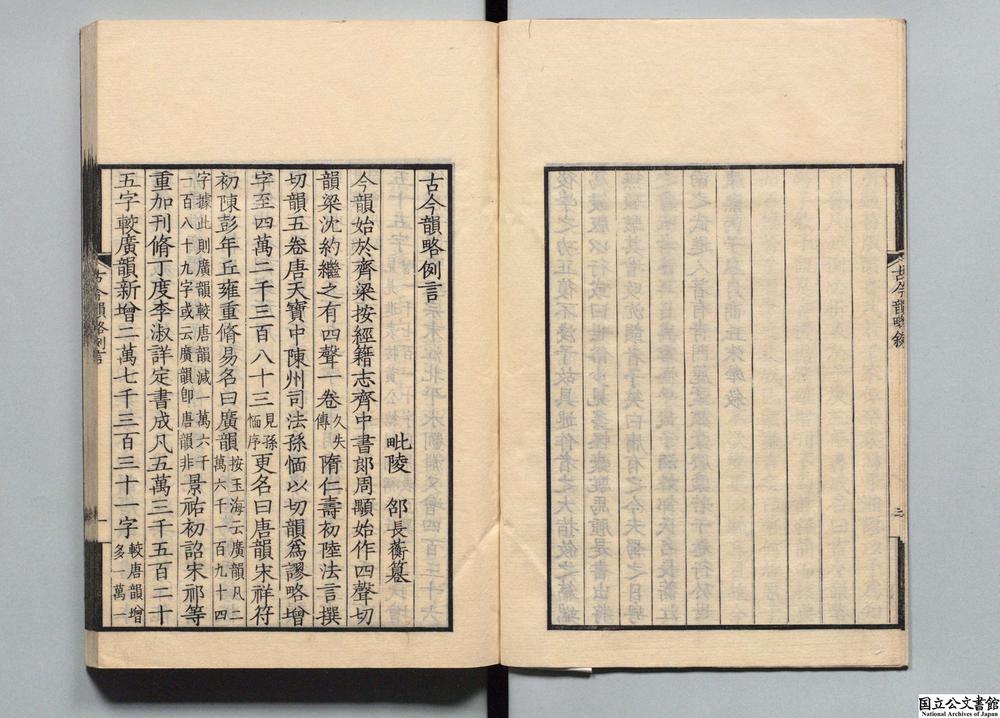 古今韻略例言
毗陵 邵長蘅纂
今韻始於齊梁按經籍志齊中書郎周顒始作四聲切
韻梁沈約繼之有四聲一卷久失傳隋仁壽初陸法言撰
切韻五卷唐天寶中陳州司法孫愐以切韻爲謬略增
字至四萬二千三百八十三見孫愐序更名曰唐韻宋祥符
初陳彭年丘雍重脩易名曰廣韻按玉海云廣韻凡二萬六千一百九十四
字據此則廣韻較唐韻減一萬六千一百八十九字或云廣韻卽唐韻非景祐初詔宋祁等
重加刊脩丁度李淑詳定書成凡五萬三千五百二十
五字較廣韻新增二萬七千三百三十一字較唐韻增多一萬一
古今韻略例言
一
古今韻略敘
二
国立公文書館
National Archives of Japan